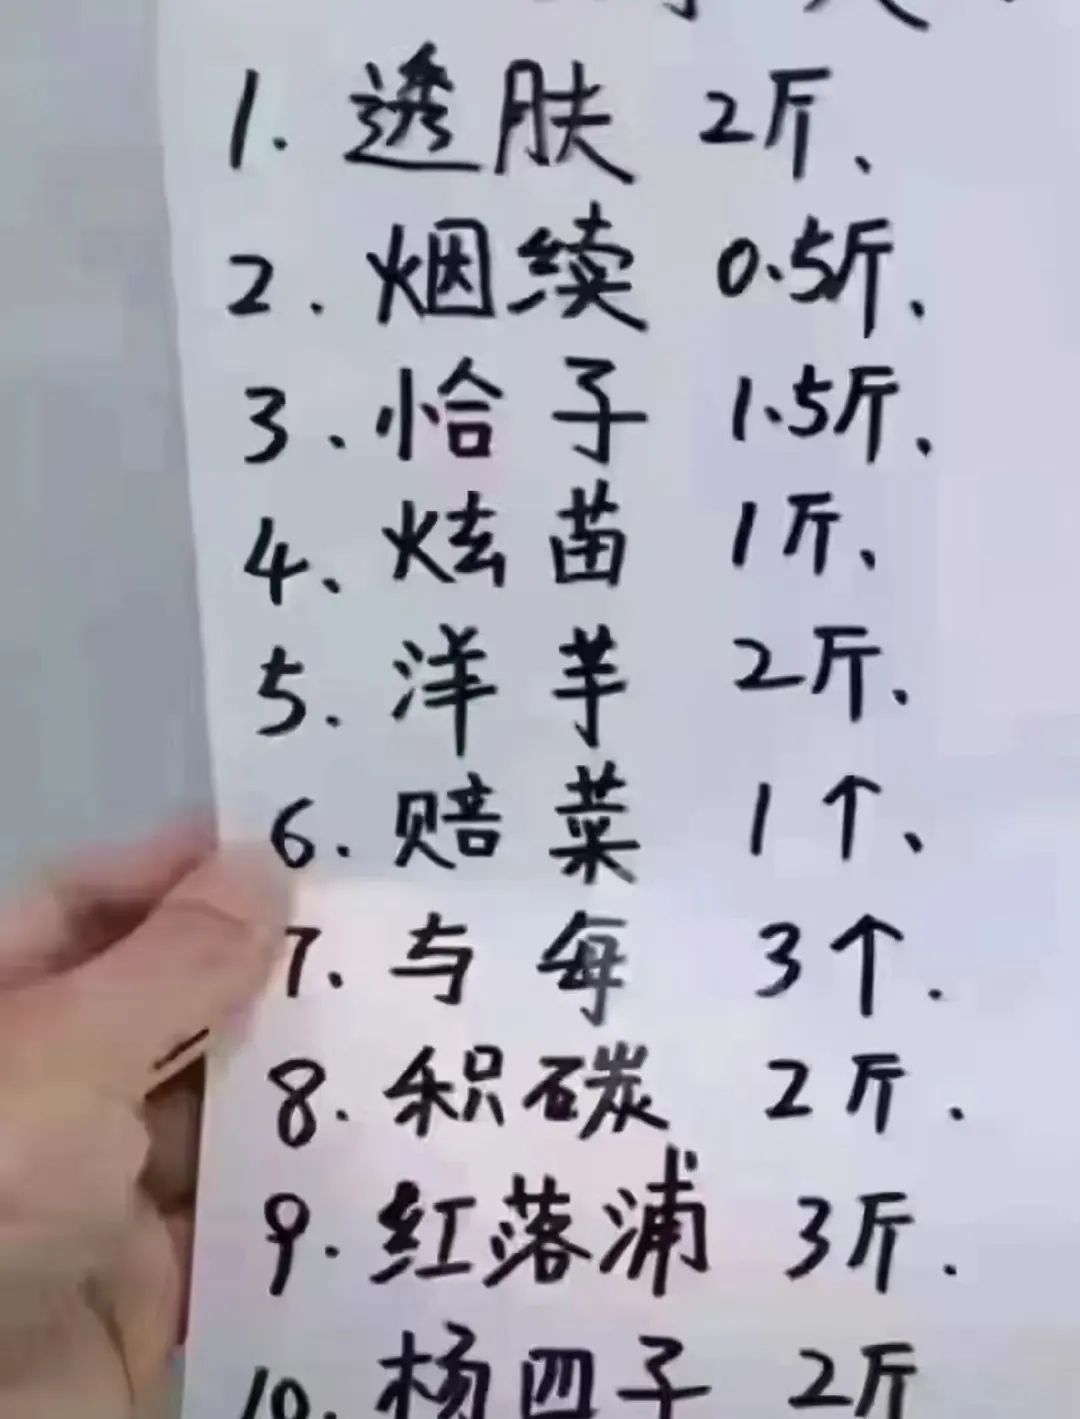 1. 透肤 2斤、
2. 烟续 0.5斤、
3、恰子 1.5斤、
4、炫苗 1斤、
5. 洋芋 2斤、
6. 赔菜 1个、
7. 与每 3个.
8. 积碳 2斤.
9. 红落浦 3斤.
10. 杨四子 2斤